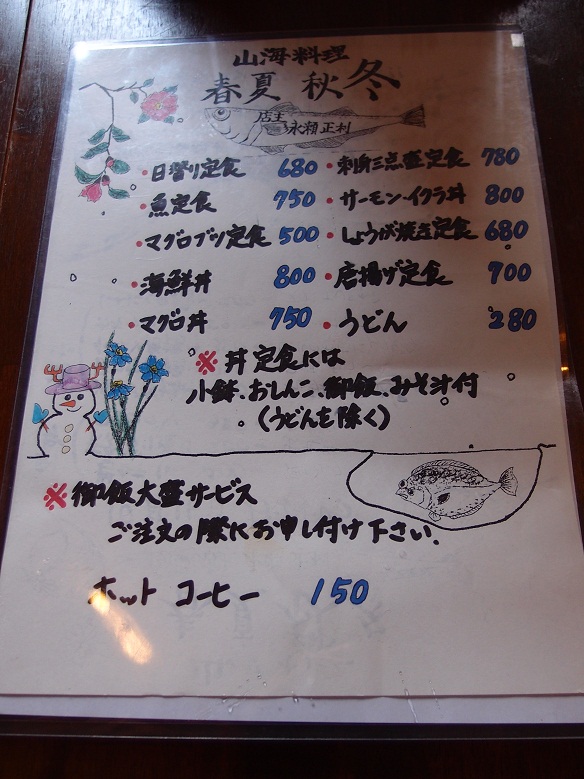 山海料理
春夏秋冬
店主 永瀬正利
・日替り定食 680
・魚定食 750
・マグロブツ定食 500
・海鮮丼 800
・マグロ丼 750
・刺身三点盛定食 780
・サーモン・イクラ丼 800
・しょうが焼き定食 680
・唐揚げ定食 700
・うどん 280
※丼定食には
小鉢、おしんこ、御飯、みそ汁付
(うどんを除く)
※御飯大盛サービス
ご注文の際にお申し付け下さい.
ホット コーヒー 150